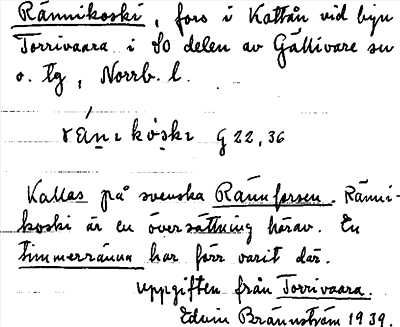 Rännikoski, fors i Kattån vid byn
Torrivaara i SO delen av Gällivare sn
o. tg, Norrb. l.
rä́nːɪ kȯskɪ G 22, 36
Kallas på svenska Rännforsen. Ränni-
koski är en översättning härav. En
timmerränna har förr varit där.
Uppgiften från Torrivaara.
Edvin Brännström 1939.